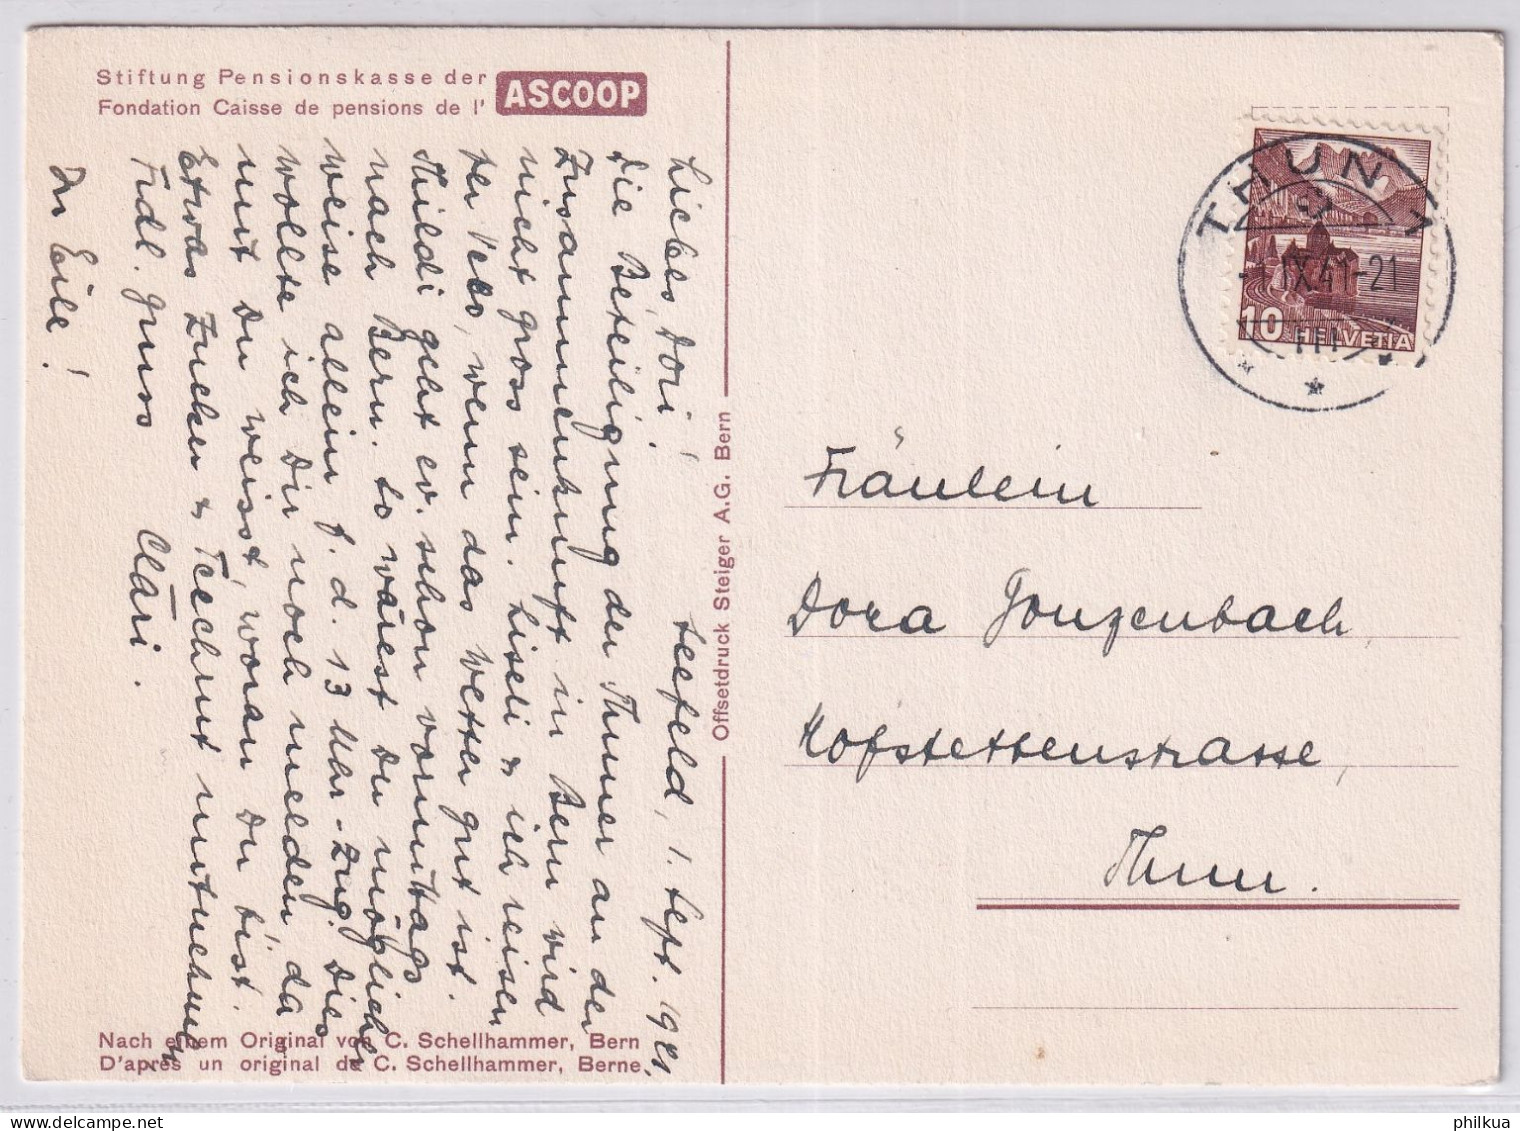 Stiftung Pensionskasse der
Fondation Caisse de pensions de l'
ASCOOP
Seefeld, 1. Sept. 1941.
Liebes Dori!
Die Beteiligung der Thuner an der
Zusammenkunft in Bern wird
nicht gross sein. Liseli & ich reisen
per Velo, wenn das Wetter gut ist.
Maildi geht ev. schon vormittags
nach Bern. So wärest Du möglicher
weise allein f. d. 13 Uhr-Zug. Dies
wollte ich Dir noch melden da
mit Du weisst, woran Du bist.
Etwas Zucker & Teechrut mitnehmen
Frdl. gruss Cläri.
In Eile!
Nach einem Original von C. Schellhammer, Bern
D'après un original de C. Schellhammer, Berne.
Offsetdruck Steiger A.G. Bern
THUN 1
-1.IX.41-21
10 HELVETIA
Fräulein
Dora Gonzenbach
Hofstettenstrasse,
Thun.
philkua